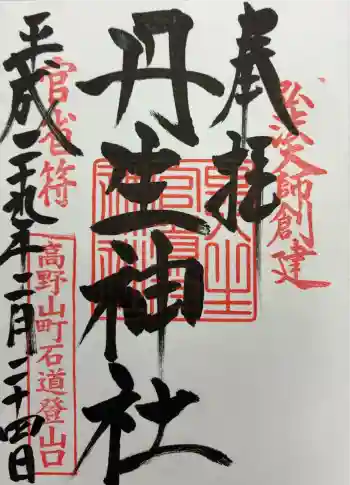 奉拝
弘法大師創建
丹生神社
官省符
高野山町石道登山口
平成二十九年二月二十四日